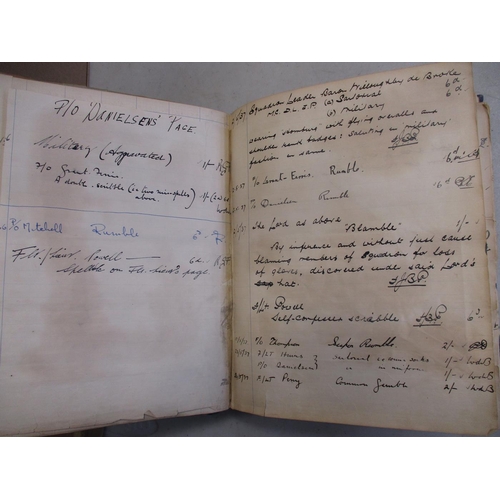 F/O 'DANIELSENS' PAGE
Military (Aggravated) 1/-
F/O Grant-Ferris.
A double scribble (as two
above.
P/O Mitchell Rumble 6d
Flt. Powell —
Spelling on page
Squadron Leader Baron Willoughby de Broke 6d
MC. D.L. E.P. (a) Sartorial 6d
(b) Military
Wearing 'bombers' with flying overalls and
shoulder head badges: Saluting in Military
fashion in same.
F/O Grant-Ferris. Rumble. 6d
F/O Danielsen Rumble 6d
The Lord as above 'Blamble' 1/-
By inference and without just cause
blaming members of Squadron for loss
of gloves, discovered under said Lord's
hat.
F/Lt Powell
Self-confessed scribble 6d
P/O Thompson Super Rumble 2/-
F/Lt sartorial 1/-
P/O Danielsen " " 1/-
P/Lt Perry Common Gamble 2/-